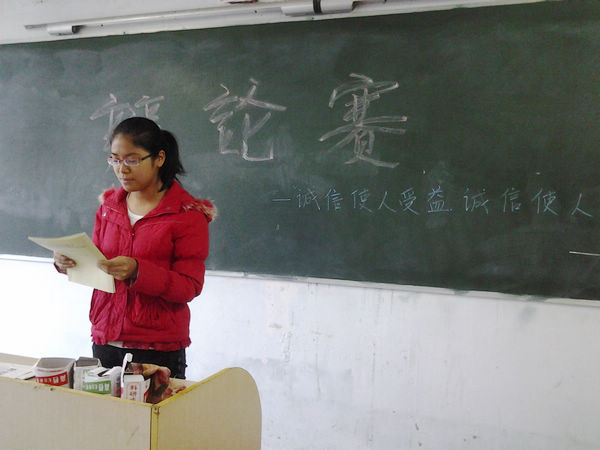 辩论赛
—诚信使人受益.诚信使人